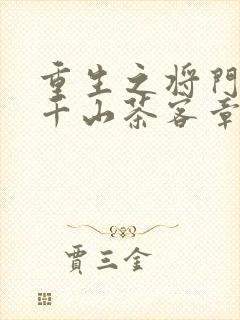 重生之将门
千山茶客章
賈三金